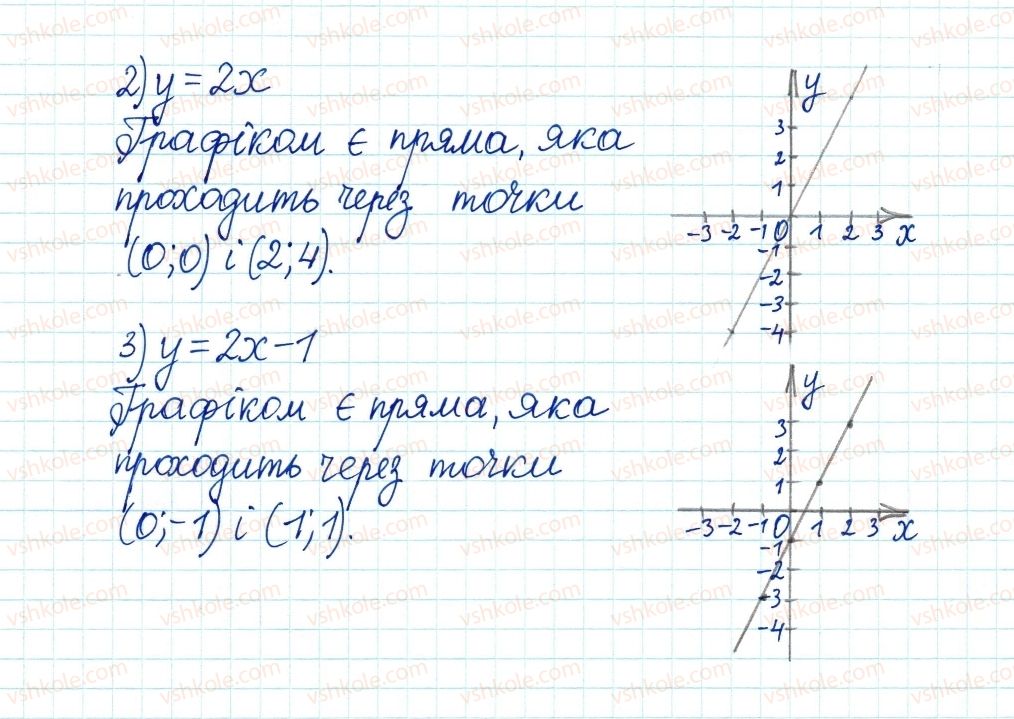 2) y = 2x
Графіком є пряма, яка
проходить через точки
(0;0) і (2;4).
y
3
2
1
-3 -2 -1 0 1 2 3 x
-1
-2
-3
-4
3) y = 2x - 1
Графіком є пряма, яка
проходить через точки
(0;-1) і (1;1).
y
3
2
1
-3 -2 -1 0 1 2 3 x
-1
-2
-3
-4
vshkole.com